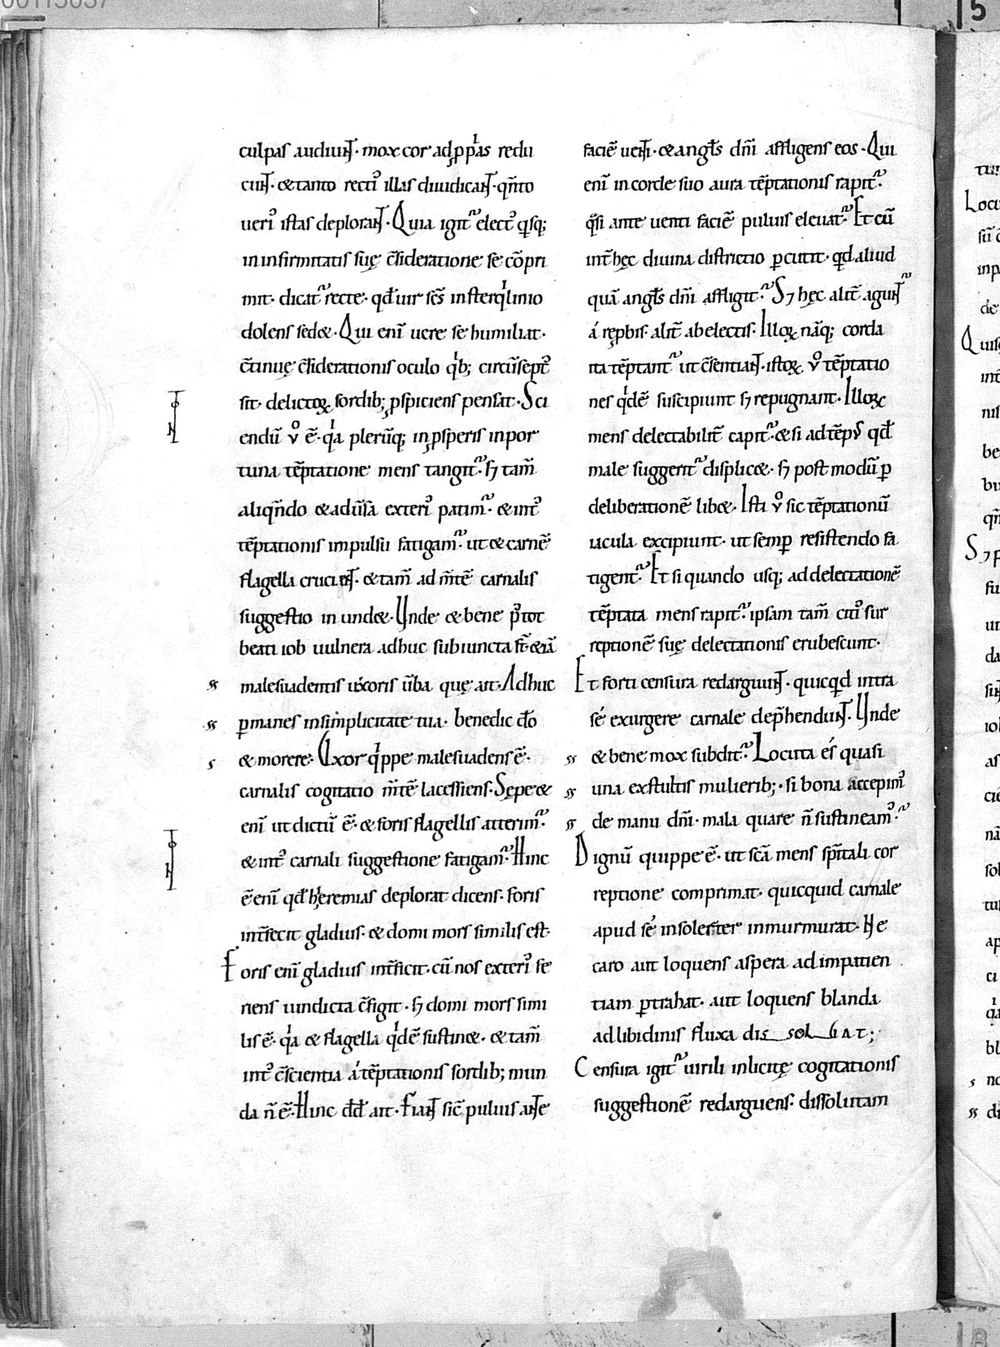 culpas audiunt· mox cor ad ꝓp̍as redu
cunt· & tanto recti᷒ illas diiudicant· qn̄to
ueri᷒ istas deplorant· Quia igit᷑ elect᷒ q̍sq;
in infirmitatis suę c̄sideratione se cōpri
mit· dicat᷑ recte· qđ uir sc̄s in sterq̍linio
dolens sede&· Qui eni̅ uere se humiliat·
c̄tinuę c̄siderationis oculo q̍b; circu̅sept᷒
sit· delictoꝝ sordib; ꝑspiciens pensat· Sci
endu̅ v͛o ē· q̍a pleru̅q; in ꝓsperis inpor
tuna te̅ptatione mens tangit᷑· sꝫ tam̅
aliqn̄do & adu̅sa exteri᷒ patim᷑· & int᷒
te̅ptationis impulsu fatigam᷑· ut & carne̅
flagella crucient· & tam̅ ad m̅te̅ carnalis
suggestio inunde&· Unde & bene p᷒ tot
beati iob uulnera adhuc subiuncta s̅t & iā
malesuadentis uxoris u̅ba quę ait· Adhuc
ꝑmanes in simplicitate tua· benedic dō
& morere· Uxor q̍ppe malesuadens ē·
carnalis cogitatio m̅te̅ lacessiens· Sępe &
eni̅ ut dictu̅ ē· & foris flagellis atterim᷑·
& int᷒ carnali suggestione fatigam᷑· Hinc
ē eni̅ qđ hieremias deplorat dicens· foris
int̅fecit gladius· & domi mors similis est·
Foris eni̅ gladius int̅ficit· cu̅ nos exteri᷒ fe
riens uindicta c̄figit· sꝫ domi mors simi
lis ē· q̍a & flagella q̍de̅ sustine&· & tam̅
int᷒ c̄scientia a te̅ptationis sordib; mun
da n̄ ē· Hinc dd̅ ait· Fiant sic̅ puluis ante
facie̅ uenti· & angl̅s dn̄i affligens eos· Qui
eni̅ in corde suo aura te̅ptationis rapit᷑·
q̍si ante uenti facie̅ puluis eleuat᷑· Et cu̅
int̅ hęc diuina districtio ꝑcutit· quid aliud
quā angl̅s dn̄i affligit᷑· Sꝫ hęc alit̅ agunt᷑
a rep̱bis· alit̅ ab electis· Illoꝝ nāq; corda
ita te̅ptant᷑ ut c̄sentiant· istoꝝ v͛o te̅ptatio
nes q̍de̅ suscipiunt sꝫ repugnant· Illoꝝ
mens delectabilit̅ capit᷑· & si ad te̅ps qđ
male suggerit᷑ displice&· sꝫ post modu̅ ꝑ
deliberatione̅ libe&· Isti v͛o sic te̅ptationu̅
iacula excipiunt· ut semꝑ resistendo fa
tigent᷑· Et si quando usq; ad delectatione̅
te̅ptata mens rapit᷑· ipsam tam̅ citi᷒ sur
reptione̅ suę delectationis erubescunt·
Et forti censura redarguunt· quicq̍d intra
se exurgere carnale dep̅hendunt· Unde
& bene mox subdit᷑· Locuta es quasi
una ex stultis mulierib;· si bona accepim᷒
de manu dn̄i· mala quare n̄ sustineam᷒·
Dignu̅ quippe ē· ut sc̅a mens sp̅itali cor
reptione comprimat· quicquid carnale
apud se insolenter inmurmurat· Ne
caro aut loquens aspera ad impatien
tiam ꝑtrahat· aut loquens blanda
ad libidinis fluxa dissoluat;
Censura igit᷑ uirili inlicitę cogitationis
suggestione̅ redarguens· dissolutam